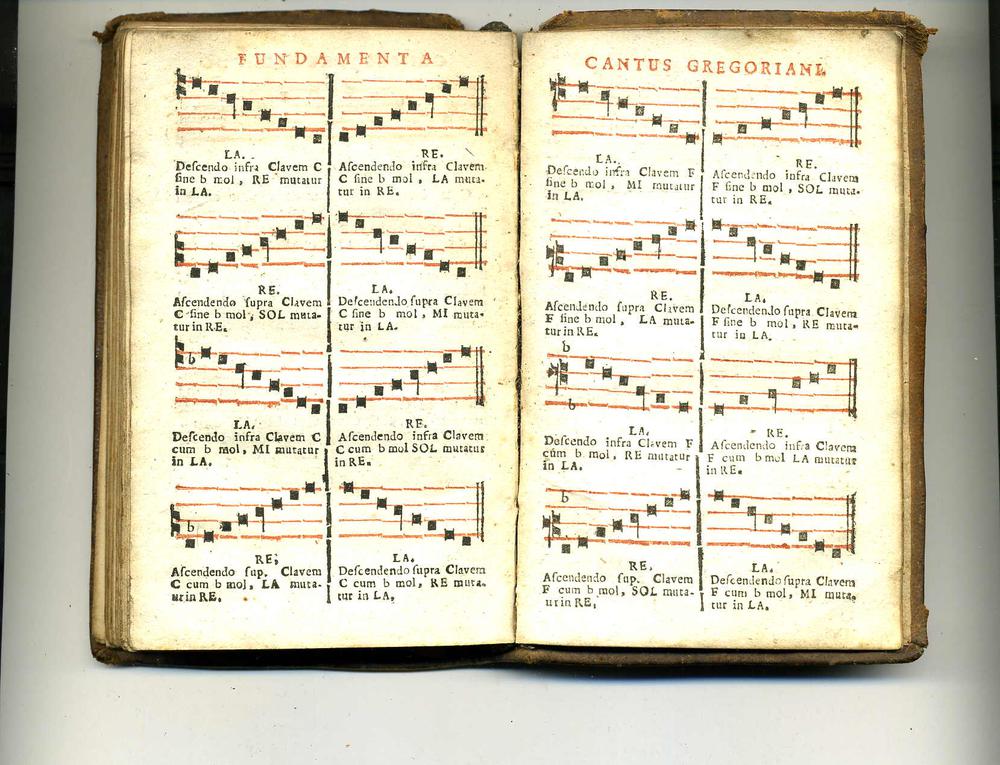 FUNDAMENTA
LA.
Deſcendo infra Clavem C
ſine b mol, RE mutatur
in LA.
RE.
Aſcendendo infra Clavem
C ſine b mol, LA muta-
tur in RE.
RE.
Aſcendendo ſupra Clavem
C ſine b mol, SOL muta-
tur in RE.
LA.
Deſcendendo ſupra Clavem
C ſine b mol, MI muta-
tur in LA.
b
LA.
Deſcendo infra Clavem C
cum b mol, MI mutatur
in LA.
RE.
Aſcendendo infra Clavem
C cum b mol SOL mutatur
in RE.
b
RE;
Aſcendendo ſup. Clavem
C cum b mol, LA muta-
tur in RE.
LA.
Deſcendendo ſupra Clavem
C cum b mol, RE muta-
tur in LA.
CANTUS GREGORIANI.
LA.
Deſcendo infra Clavem F
ſine b mol, MI mutatur
in LA.
RE.
Aſcendendo infra Clavem
F ſine b mol, SOL muta-
tur in RE.
RE.
Aſcendendo ſupra Clavem
F ſine b mol, LA muta-
tur in RE.
LA.
Deſcendendo ſupra Clavem
F ſine b mol, RE muta-
tur in LA.
b
b
LA.
Deſcendo infra Clavem F
cum b mol, RE mutatur
in LA.
RE.
Aſcendendo infra Clavem
F cum b mol LA mutatur
in RE.
b
RE.
Aſcendendo ſup. Clavem
F cum b mol, SOL muta-
tur in RE.
LA.
Deſcendendo ſupra Clavem
F cum b mol, MI muta-
tur in LA.